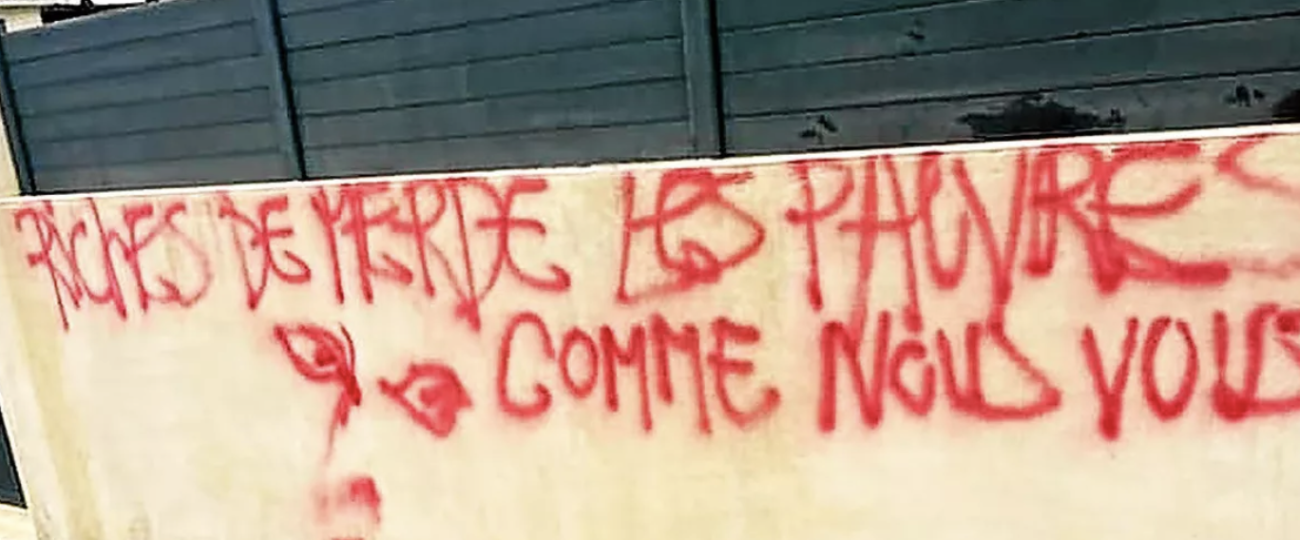 RICHES DE MERDE LES PAUVRES
COMME NOUS VOUS